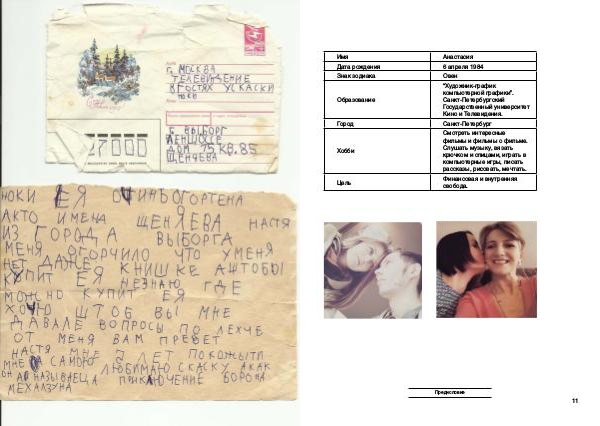 Г. МОСКВА
ТЕЛЕВИДЕНИЕ
ВГОСТЯХ УСКАСКИ
27000
Г. ВЫБОРГ
ДОМ 15 КВ. 85
ЩЕНЯЕВА
ЕЯ ОГОРТЕНА
АКТО ИМЕНА ЩЕНЯЕВА НАСТЯ
ИЗ ГОРОДА ВЫБОРГА
МЕНЯ ОГОРЧИЛО ЧТО УМЕНЯ
НЕТ ДАЖЕ КНИШКЕ АШТОБЫ
КУПИТ ЕЯ НЕЗНАЮ ГДЕ
МОЖНО КУПИТ ЕЯ
ХОЧЮ ШТОБ ВЫ МНЕ
ДАВАЛЕ ВОПРОСЫ ПО ЛЕХЧЕ
ОТ МЕНЯ ВАМ ПРЕВЕТ
НАСТЯ МНЕ ЛЕТ ПОКОЖЫТИ
МНЕ САМОЮ ЛЮБИМАЮ СКАСКУ АКАК
ОН НАЗЫВАЕЦА ПРИКЛЮЧЕНИЕ БОРОНА
МЕХАЛЗУНА
Имя Анастасия
Дата рождения 6 апреля 1984
Знак зодиака Овен
Образование "Художник-график
компьютерной графики".
Санкт-Петербургский
Государственный университет
Кино и Телевидения.
Город Санкт-Петербург
Хобби Смотреть интересные
фильмы и фильмы о фильме.
Слушать музыку, вязать
крючком и спицами, играть в
компьютерные игры, писать
рассказы, рисовать, мечтать.
Цель Финансовая и внутренняя
свобода.
Предисловие
11